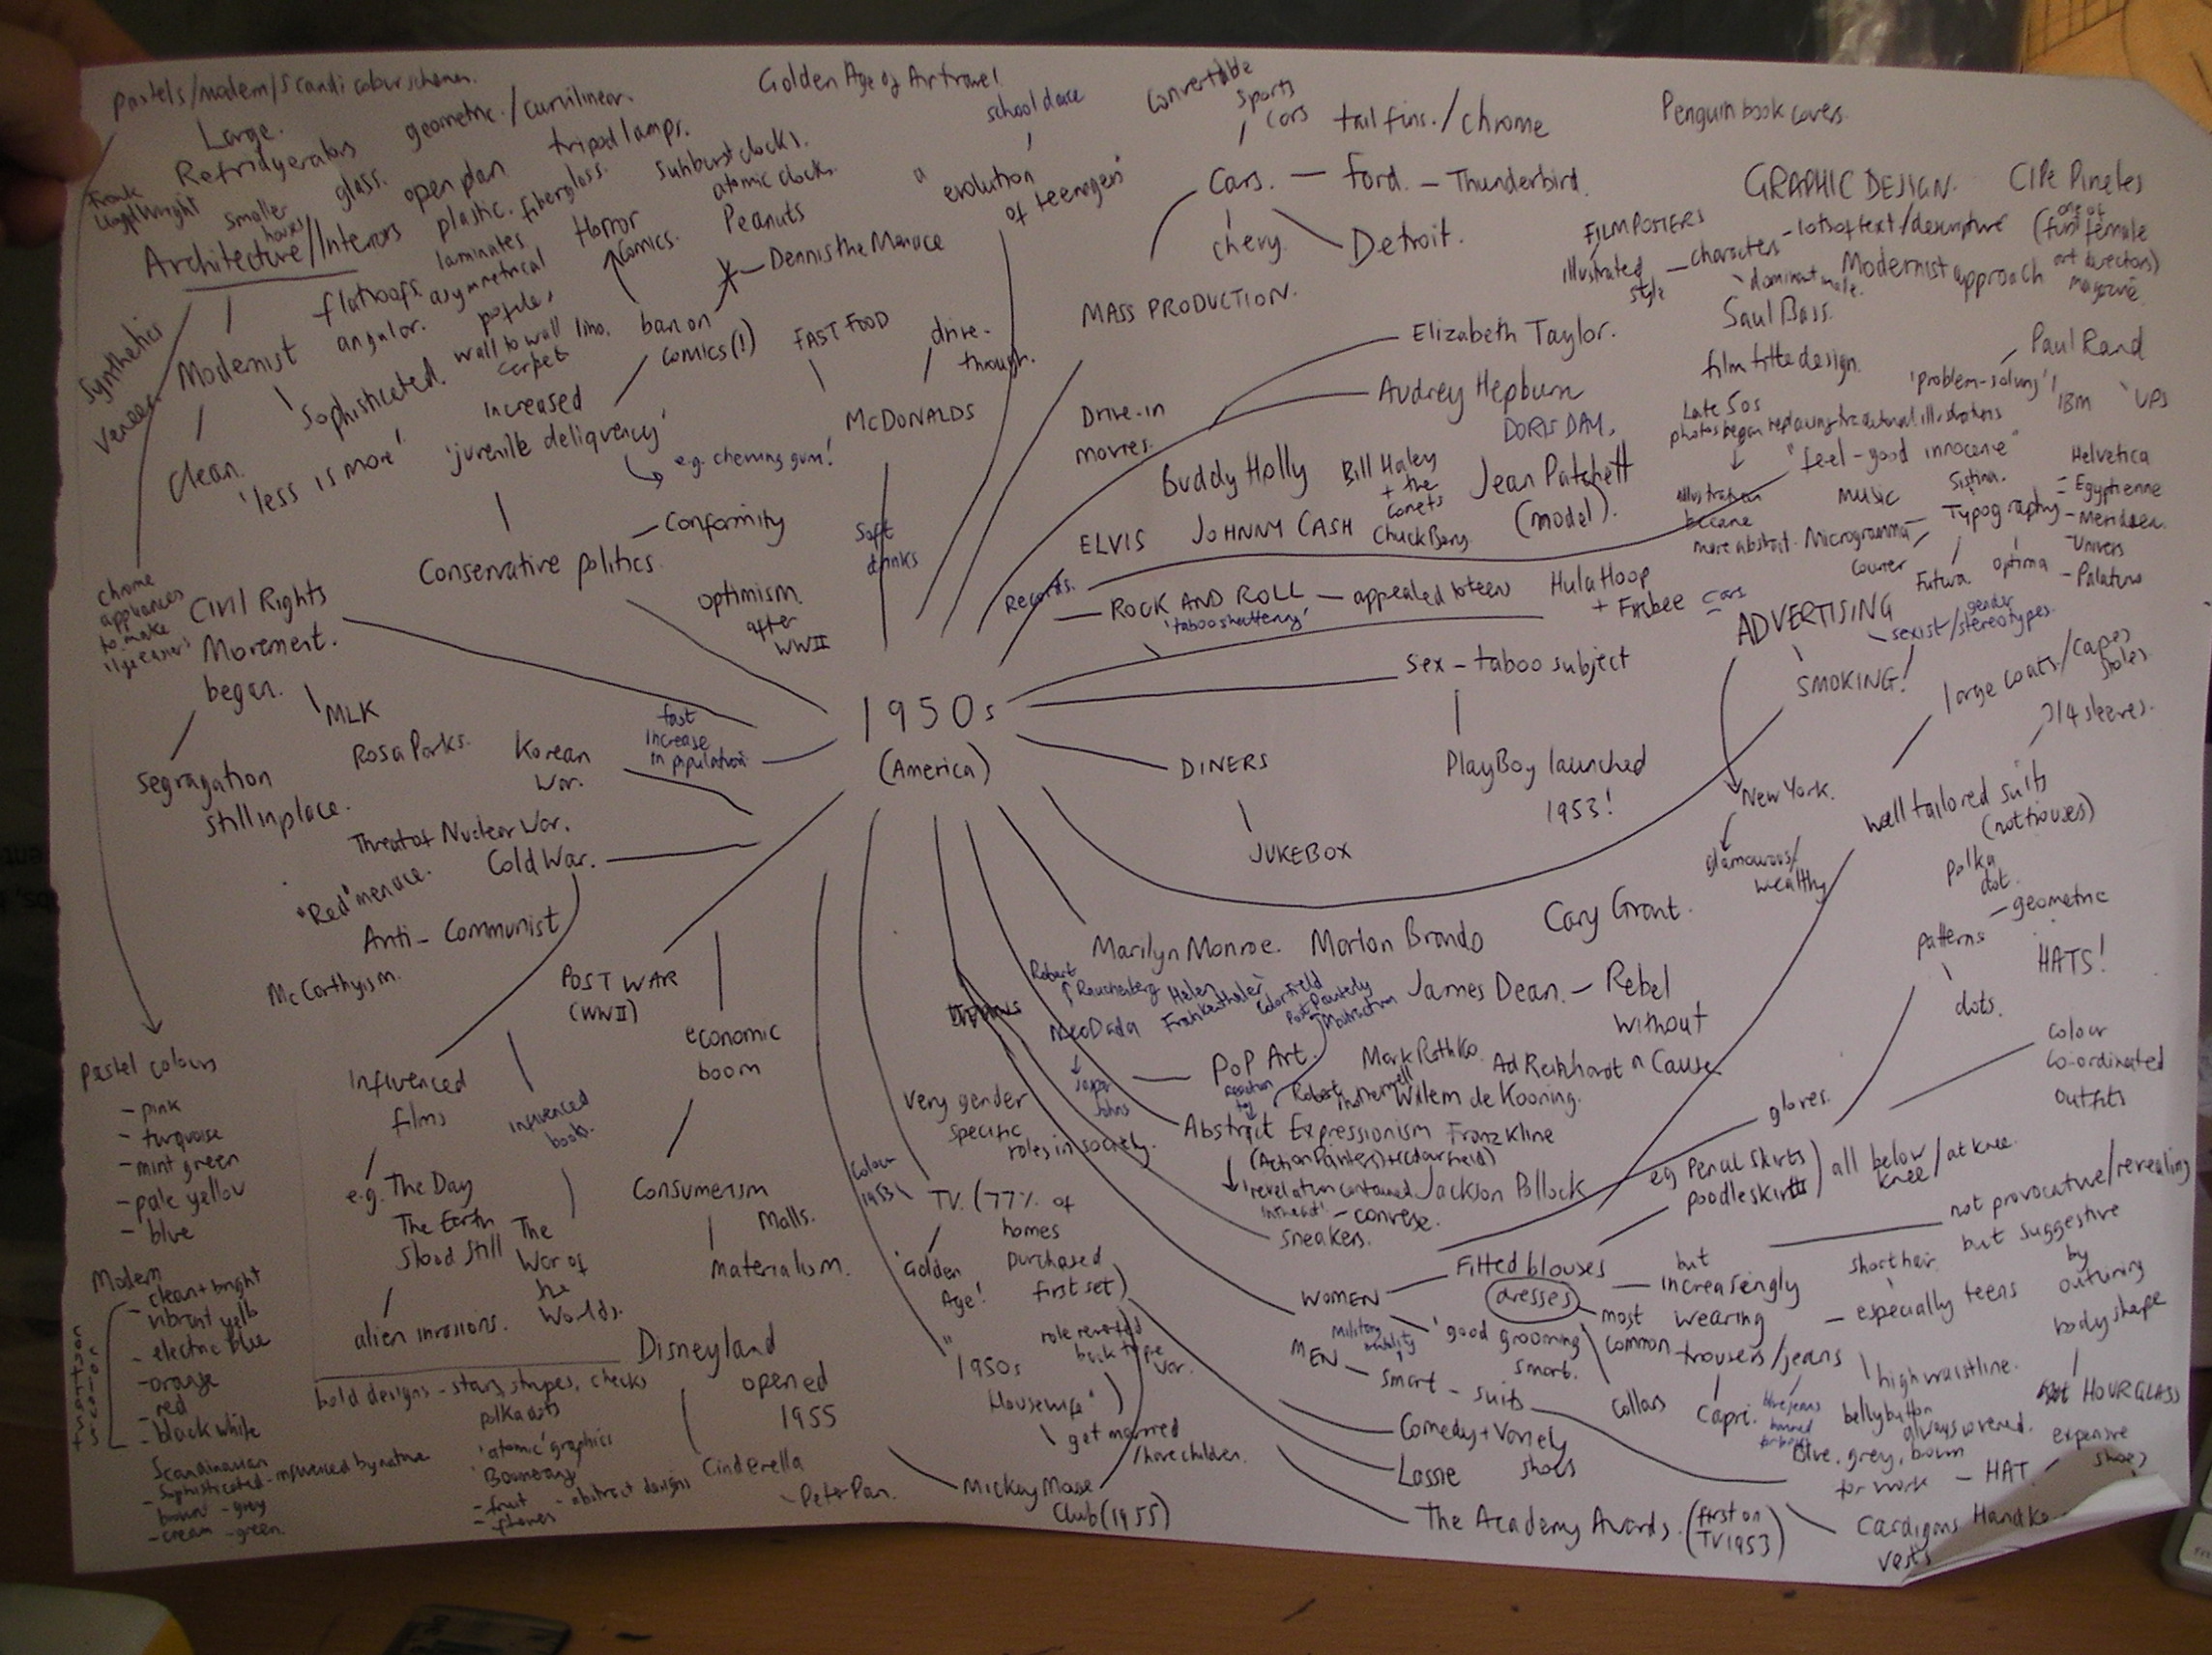 pastels/modern/Scandi colour schemes.
Large.
Refridgerators
geometric./curvilinear.
Golden Age of Air travel
school dance
Convertible
Sports
Cars
tail fins./chrome
Penguin book covers.
Frank
Lloyd Wright
smaller
houses
glass.
open plan
tripod lamps.
plastic. fiberglass.
sunburst clocks.
atomic clocks.
Architecture/Interiors
laminates.
flat roofs.
angular.
asymmetrical
Horror
Comics.
Peanuts
Dennis the Menace
evolution
of teenagers"
Cars. – Ford. – Thunderbird.
chevy.
Detroit.
MASS PRODUCTION.
GRAPHIC DESIGN.
CIPe Pineles
(one of
first female
art directors)
magazine
FILM POSTERS
illustrated
style
– characters
- lots of text/descripture
'dominant male.
Modernist approach
Saul Bass.
film title design.
Paul Rand
'problem-solving'
IBM
UPS
Late 50s
photos began replacing traditional illustrators
illustration
became
more abstract.
"feel-good innocence"
music
Sistina.
Typography
Microgramma
Courier
Futura
optima
Helvetica
- Egyptienne
- Meridien
- Univers
- Palatino
Synthetics
Veneer
Modernist
Clean.
Sophisticated.
'less is more'.
wall to wall
carpet
lino.
ban on
comics(!)
FAST FOOD
drive-
through.
McDONALDS
increased
'juvenile deliquency'
e.g. chewing gum!
Conservative politics.
Conformity
Soft
drinks
optimism
after
WWII
Drive-in
movies.
Elizabeth Taylor.
Audrey Hepburn
DORIS DAY.
Buddy Holly
Bill Haley
+ the
Comets
Jean Patchett
(model).
ELVIS
JOHNNY CASH
Chuck Berry
Records.
ROCK AND ROLL – appealed to teens
'taboo shattering'
Hula Hoop
+ Frisbee
Cars
ADVERTISING
sexist/gender stereotypes.
SMOKING!
New York.
glamourous/
wealthy
Chrome
appliances
to make
life easier!
Civil Rights
Movement.
began.
MLK
Rosa Parks.
segragation
still in place.
fast
increase
in population
Korean
War.
Threat of Nuclear War.
Cold War.
"Red" menace.
Anti-Communist
McCarthyism.
1950s
(America)
Sex – taboo subject
PlayBoy launched
1953!
DINERS
JUKEBOX
large coats/capes
stoles.
3/4 sleeves.
well tailored suits
(not trousers)
polka
dot.
- geometric
patterns
dots.
HATS!
colour
co-ordinated
outfits
POST WAR
(WWII)
economic
boom
Influenced
films
influenced
books.
e.g. The Day
The Earth
Stood Still
The
War of
the
Worlds.
alien invasions.
Consumerism
Malls.
materialism.
Marilyn Monroe.
Marlon Brando
Cary Grant.
James Dean. – Rebel
Without
a Cause
Robert
Rauschenberg
Helen
Frankenthaler
Colorfield
Post-Painterly
Abstraction
Neo Dada
Jasper
Johns
Pop Art.
reaction
to
Mark Rothko
Ad Reinhardt
Robert
Motherwell
Willem de Kooning.
Abstract Expressionism
Franz Kline
(Action Painters)+(Colour field)
'revelation contained
Jackson Pollock
- converse.
sneakers.
very gender
specific
roles in society.
Colour
1953
TV. (77% of
homes
purchased
first set)
'Golden
Age!
"1950s
Housewife"
get married
/have children.
gloves.
eg Pencil skirts
poodle skirts
) all below
knee/at knee.
WOMEN
Fitted blouses
dresses
but
increasingly
wearing
trousers/jeans
most
common
'good grooming
smart.
short hair
– especially teens
not provocative/revealing
but suggestive
by
outlining
body shape
HOURGLASS
high waistline.
bellybutton
always covered.
collars
Capri.
MEN – smart – suits
military
Blue, grey, brown
for work
– HAT.
expensive
shoes
Cardigans
vests
Comedy + Variety
Shows
Lassie
The Academy Awards. (first on
TV 1953)
Pastel colours
- pink
- turquoise
- mint green
- pale yellow
- blue
Modern
- clean + bright
- electric blue
- orange
- red
- black white
Scandinavian
- sophisticated - influenced by nature
brown - grey
- cream - green.
bold designs - stars, stripes, checks
polka dots
'atomic' graphics
Boomerang
- fruit
- flowers
- abstract designs
Disneyland
opened
1955
Cinderella
- Peter Pan.
Mickey Mouse
Club (1955)